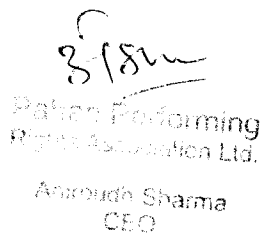 Performing
Rights Association Ltd.
Aniroudh Sharma
CEO